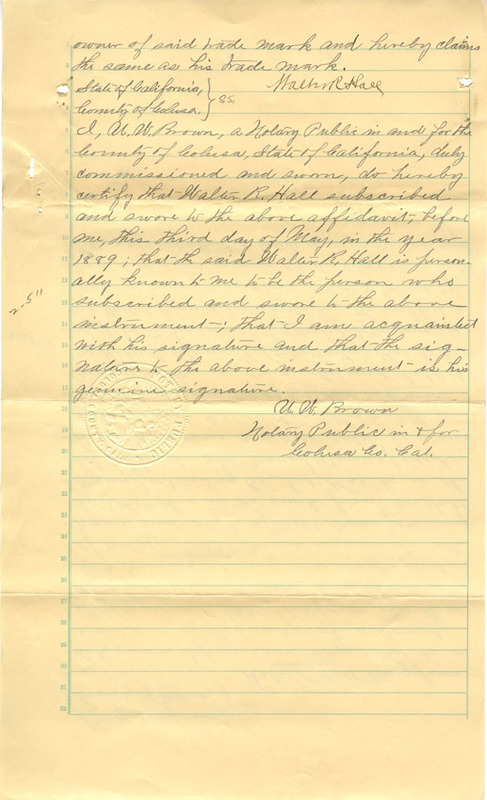 owner of said trade mark and hereby claims
the same as his trade mark.
Walter R. Hall
State of California, } ss.
County of Colusa. }
I, U. W. Brown, a Notary Public in and for the
County of Colusa, State of California, duly
commissioned and sworn, do hereby
certify that Walter R. Hall subscribed
and swore to the above affidavit, before
me, this third day of May, in the year
1889; that the said Walter R. Hall is person-
ally known to me to be the person who
subscribed and swore to the above
instrument; that I am acquainted
with his signature and that the sig-
nature to the above instrument is his
genuine signature.
U. W. Brown
Notary Public in & for
Colusa Co. Cal.
2-5"
NOTARY PUBLIC